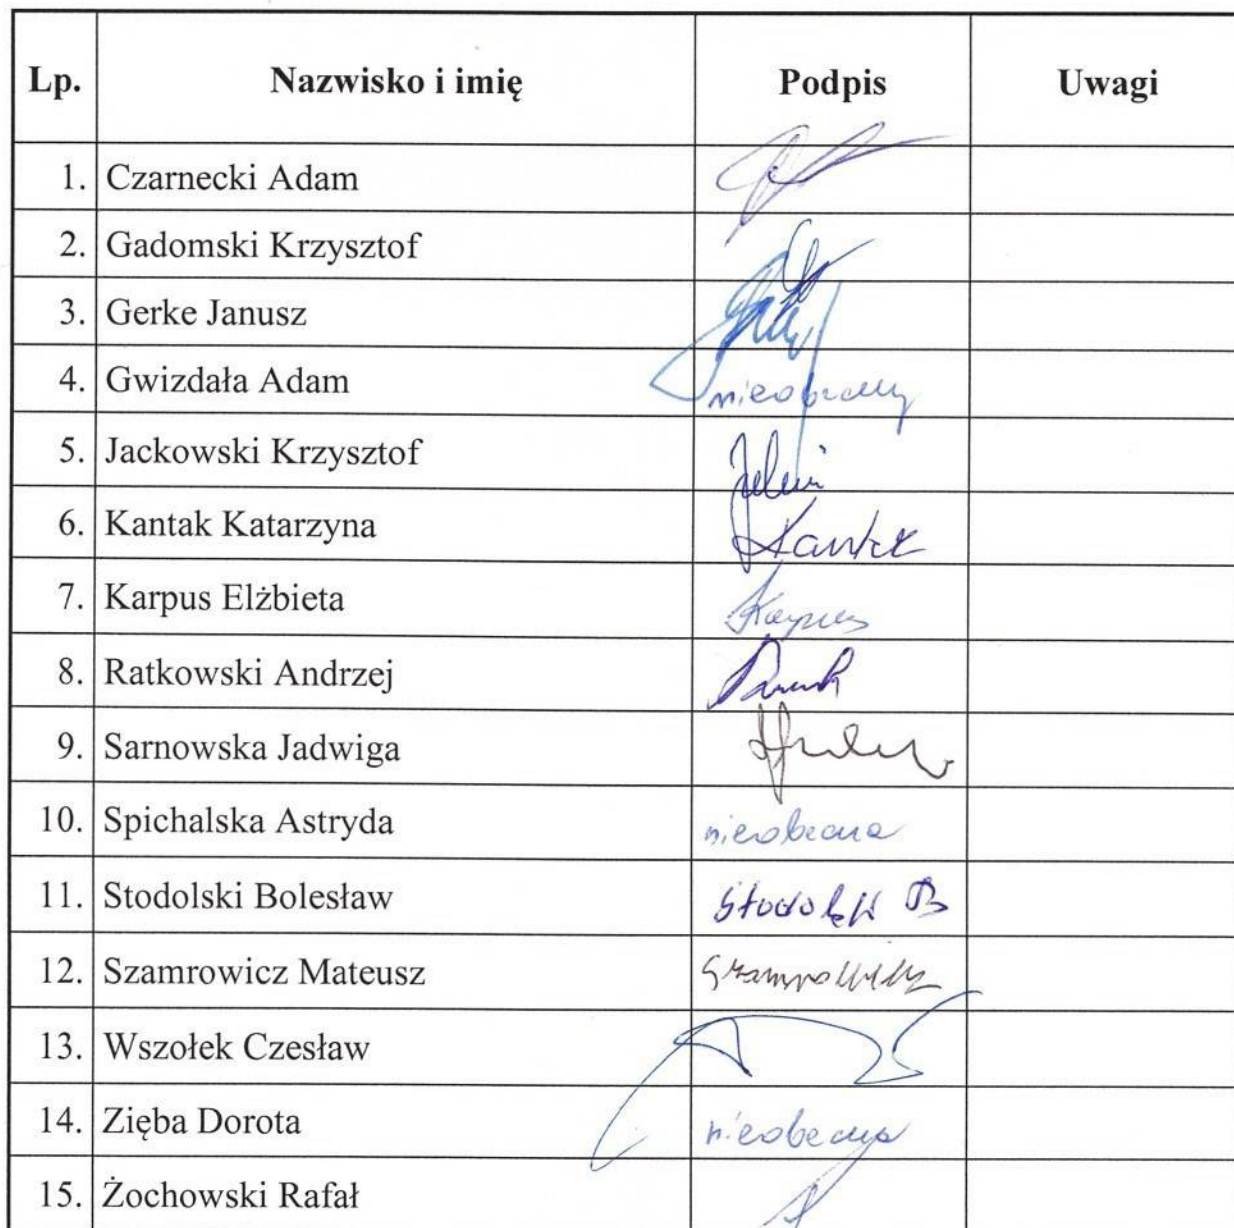 Lp. Nazwisko i imię Podpis Uwagi
1. Czarnecki Adam
2. Gadomski Krzysztof
3. Gerke Janusz
4. Gwizdała Adam nieobecny
5. Jackowski Krzysztof
6. Kantak Katarzyna Kantak
7. Karpus Elżbieta Karpus
8. Ratkowski Andrzej
9. Sarnowska Jadwiga
10. Spichalska Astryda nieobecna
11. Stodolski Bolesław Stodolski B
12. Szamrowicz Mateusz
13. Wszołek Czesław
14. Zięba Dorota nieobecna
15. Żochowski Rafał